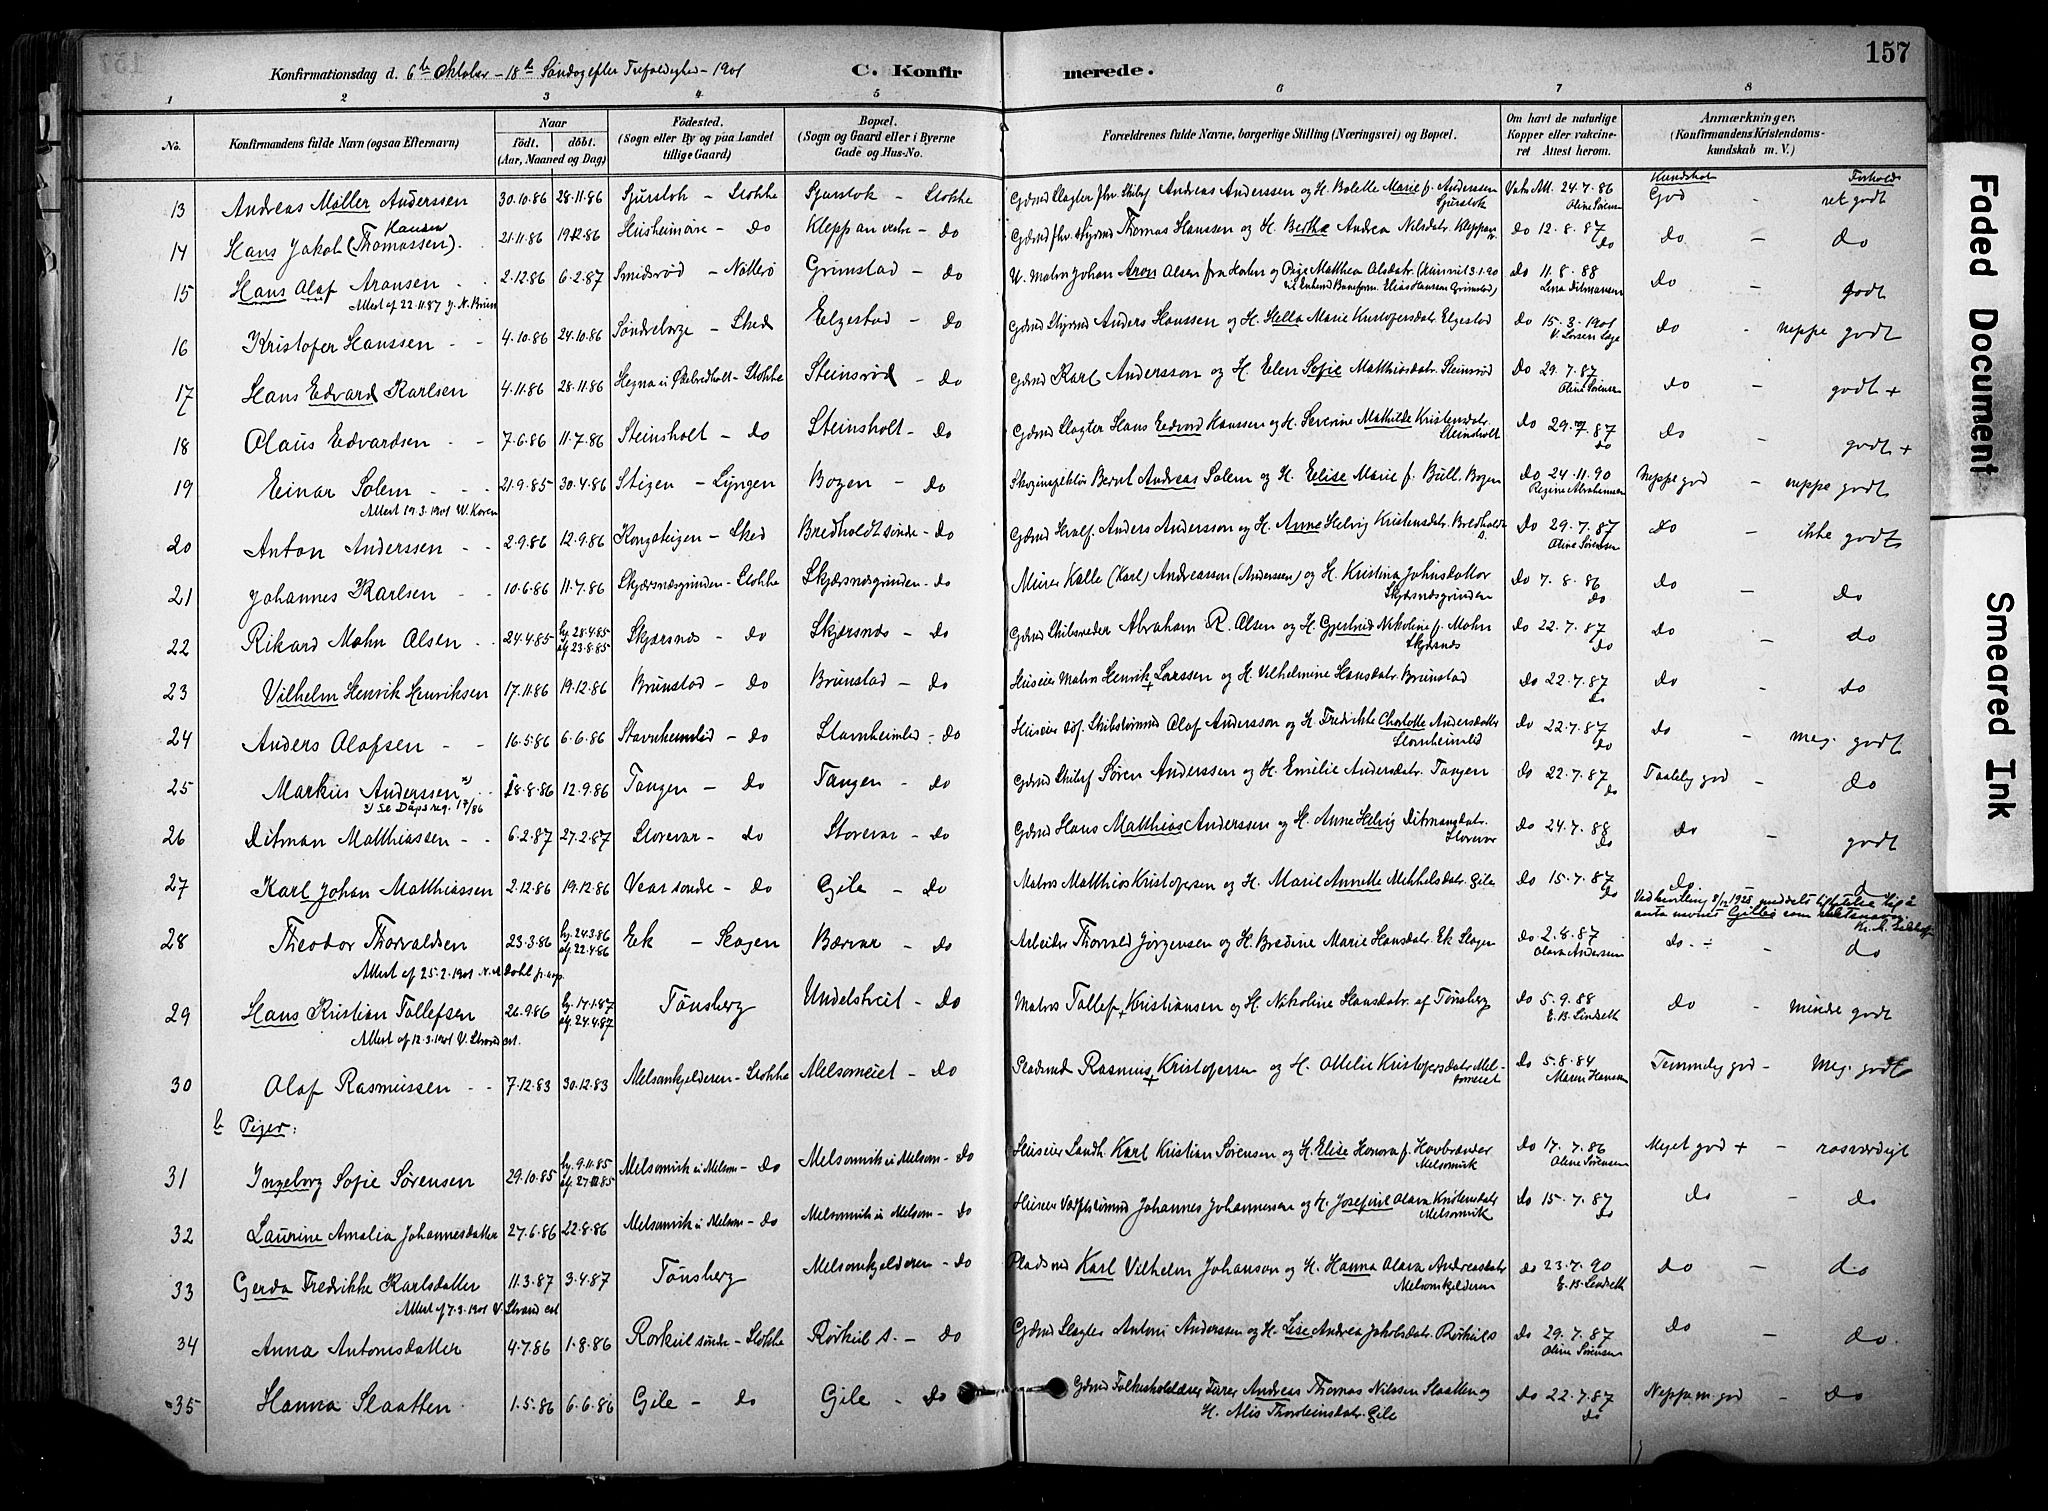 157
Konfirmationsdag d. 6te Oktober - 18de Søndag efter Trefoldighed - 1901 C. Konfirmerede.
1 2 3 4 5 6 7 8
No. Konfirmandens fulde Navn (ogsaa Efternavn) Naar født. døbt. (Aar, Maaned og Dag) Fødested. (Sogn eller By og paa Landet tillige Gaard) Bopæl. (Sogn og Gaard eller i Byerne Gade og Hus-No. Forældrenes fulde Navne, borgerlige Stilling (Næringsvei) og Bopæl. Om havt de naturlige Kopper eller vakcineret Attest herom. Anmærkninger. (Konfirmandens Kristendomskundskab m. V.)
Kundskab Forhold
13 Andreas Møller Anderssen 30.10.86 28.11.86 Sjurstok - Stokke Sjurstok - Stokke Gdmd Slagter fhv. Skibsf Andreas Anderssen og H. Bolette Marie f. Anderssen Sjurstok Vac. Att. 24.7.86 Oline Sørensen God - ret godt
14 Hans Jakob (Thomassen) Hansen 21.11.86 19.12.86 Husheimøre - do Kleppan vestre - do Gdmd fhv. Styrmd Thomas Hanssen og H. Berthe Andrea Nilsdatr. Kleppan v. do 12.8.87 do do - do
15 Hans Olaf Aronsen 2.12.86 6.2.87 Smidsrød - Nøtterø Grimstad - do U. Matros Johan Aron Olsen fra Holm og Pige Matthea Olsdatr. do 11.8.88 Lena Ditmansen do - godt
Attest af 22.11.87 J. N. Brun
16 Kristofer Hanssen 4.10.86 24.10.86 Søndreberge - Sked Elgestad - do Gdmd Styrmd Anders Hanssen og H. Hella Marie Kristofersdatr. Elgestad do 15.3.1901 V. Larsen Læge do - neppe godt
17 Hans Edvard Karlsen 4.11.86 28.11.86 Hegna u Østbredholt - Stokke Steinsrød - do Gdmd Karl Andersson og H. Elen Sofie Matthiasdatr. Steinsrød do 29.7.87 Oline Sørensen do godt +
18 Olaus Edvardsen 7.6.86 11.7.86 Steinsholt - do Steinsholt - do Gdmd Slagter Hans Edvard Hanssen og H. Severine Mathilde Kristensdatr. Steinsholt do 29.7.87 do do - godt +
19 Einar Solem 21.9.85 30.4.86 Stigen - Lyngen Bogen - do Skoginspektør Bernt Andreas Solem og H. Elise Marie f. Bull. Bogen do 24.11.90 Regine Abrahamsen Neppe god - neppe godt
Attest 19.3.1901 W. Koren
20 Anton Anderssen 2.9.86 12.9.86 Kongsteigen - Sked Bredholdt søndre - do Gdmd Hvalf. Anders Andersson og H. Anne Helvig Kristensdatr. Bredholdt s. do 29.7.87 Oline Sørensen do - ikke godt
21 Johannes Karlsen 10.6.86 11.7.86 Skjærsnæsgrinden - Stokke Skjærsnæsgrinden - do Murer Kalle (Karl) Andreassen (Anderssen) og H. Kristina Johnsdotter Skjærsnæsgrinden do 7.8.86 do do - do
22 Rikard Mohn Olsen 24.4.85 hj. 28.4.85 af. 23.8.85 Skjærsnæs - do Skjærsnæs - do Gdmd Skibsreder Abraham R. Olsen og H. Gjertrud Nikoline f. Mohn Skjærsnæs do 22.7.87 do do - do
23 Vilhelm Henrik Henriksen 17.11.86 19.12.86 Brunstad - do Brunstad - do Huseier Matros Henrik + Larssen og H. Vilhelmine Hansdatr. Brunstad do 22.7.87 do do - do
24 Anders Olafsen 16.5.86 6.6.86 Stavnheimlid - do Stavnheimlid - do Huseier Skibstømmd Olaf Andersson og H. Fredrikke Charlotte Andersdatter Stavnheimlid do 22.7.87 do do - meg. godt
25 Markus Anderssen 18.8.86 12.9.86 Tangen - do Tangen - do Gdmd Skibsf Søren Anderssen og H. Emilie Andersdatr. Tangen do 22.7.87 do Taalelig god - do
x) Se Dåpsreg. 17/86
26 Ditman Matthiassen 6.2.87 27.2.87 Storevar - do Storevar - do Gdmd Hans Matthias Anderssen og H. Anne Helvig Ditmansdatr. Storevar do 24.7.88 do do - godt
27 Karl Johan Matthiassen 2.12.86 19.12.86 Vear søndre - do Gile - do Matros Matthias Kristofersen og H. Marie Annette Mikkelsdatr. Gile do 15.7.87 do do do
Ved bevilling 1925 meddelt tilladelse til å anta navnet Gilbo som slektsnavn.
28 Theodor Thorvaldsen 23.3.86 hj. 24.3.86 af. 22.4.86 Ek - Slagen Bærvar - do Arbeider Thorvald Jørgensen og H. Bredine Marie Hansdatr. Ek Slagen do 2.8.87 Olava Andersen do - do
Attest af 25.2.1901 N. A. Dahl p. aop.
29 Hans Kristian Tollefsen 26.9.86 hj. 17.1.87 af. 24.4.87 Tønsberg Undelstveit - do Matros Tollef + Kristiansen og H. Nikoline Hansdatr. af Tønsberg do 5.9.88 E. B. Lindseth do - mindre godt
Attest af 12.3.1901 V. Strand est.
30 Olaf Rasmussen 7.12.83 30.12.83 Melsomkjelderen - Stokke Melsomeiet - do Pladsmd Rasmus + Kristofersen og H. Ottilie Kristofersdatr. Melsomeiet do 5.8.84 Maren Hansen Temmelig god - Meg. godt
b Piger:
31 Ingeborg Sofie Sørensen 29.10.85 hj. 9.11.85 af. 27.12.85 Melsomvik u Melsom - do Melsomvik u Melsom - do Huseier Landh. Karl Kristian Sørensen og H. Elise Honora f. Havbrænder Melsomvik do 17.7.86 Oline Sørensen Meget god + - rosværdigt
32 Laurine Amalia Johannesdatter 27.6.86 22.8.86 Melsomvik u Melsom - do Melsomvik u Melsom - do Huseier Værftstømmd Johannes Johannessen og H. Josefine Olava Kristensdatr Melsomvik do 15.7.87 do do - do
33 Gerda Fredrikke Karlsdatter 11.3.87 3.4.87 Tønsberg Melsomkjelderen - do Pladsmd Karl Vilhelm Johanson og H. Hanna Olava Andreasdatr Melsomkjelderen do 23.7.90 E. B. Lindseth do - do
Attest af 7.3.1901 V. Strand est
34 Anna Antonisdatter 4.7.86 1.8.86 Rørkul søndre - Stokke Rørkul s. - do Gdmd Slagter Antoni Anderssen og H. Lise Andrea Jakobsdatr. Rørkul s do 29.7.87 Oline Sørensen do - do
35 Hanna Slaatten 1.5.86 6.6.86 Gile - do Gile - do Gdmd Folkeskolelærer Andreas Thomas Nilssen Slaatten og H. Alis Thorsteinsdatr. Gile do 22.7.87 do Neppe m. god - do
Faded Document
Smeared Ink